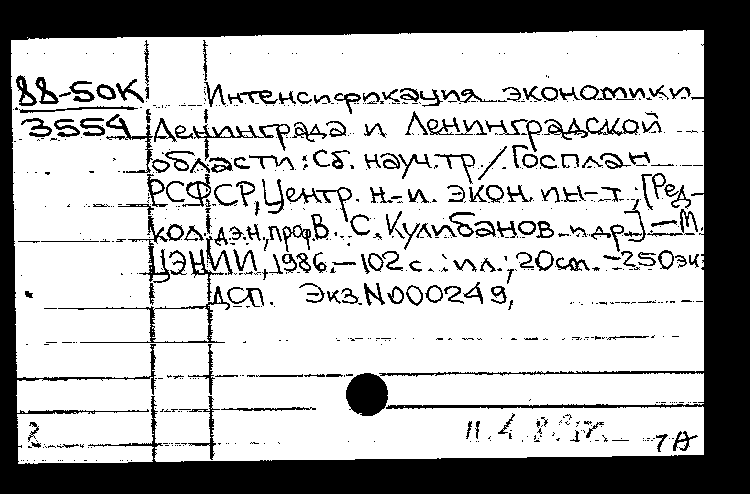 88-50К
3554
Интенсификация экономики
Ленинграда и Ленинградской
области: Сб. науч. тр / Госплан
РСФСР, Центр. н.-и. экон. ин-т; [Ред-
кол. д.э.н, проф В. С. Кулибанов и др.] — М.
ЦЭНИИ, 1986. — 102 с. : ил.; 20 см. - 250 экз
ДСП. Экз. N000249,
2
11. 4. 88
7А